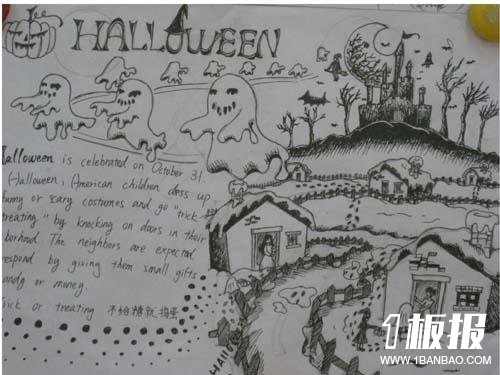 HALLOWEEN
Halloween is celebrated on October 31.
Halloween, American children dress up
funny or scary costumes and go "trick
treating" by knocking on doors in their
borhood. The neighbors are expected
respond by giving them small gifts
candy or money.
Trick or treating 不给糖就捣蛋
1板报
WWW.1BANBAO.COM